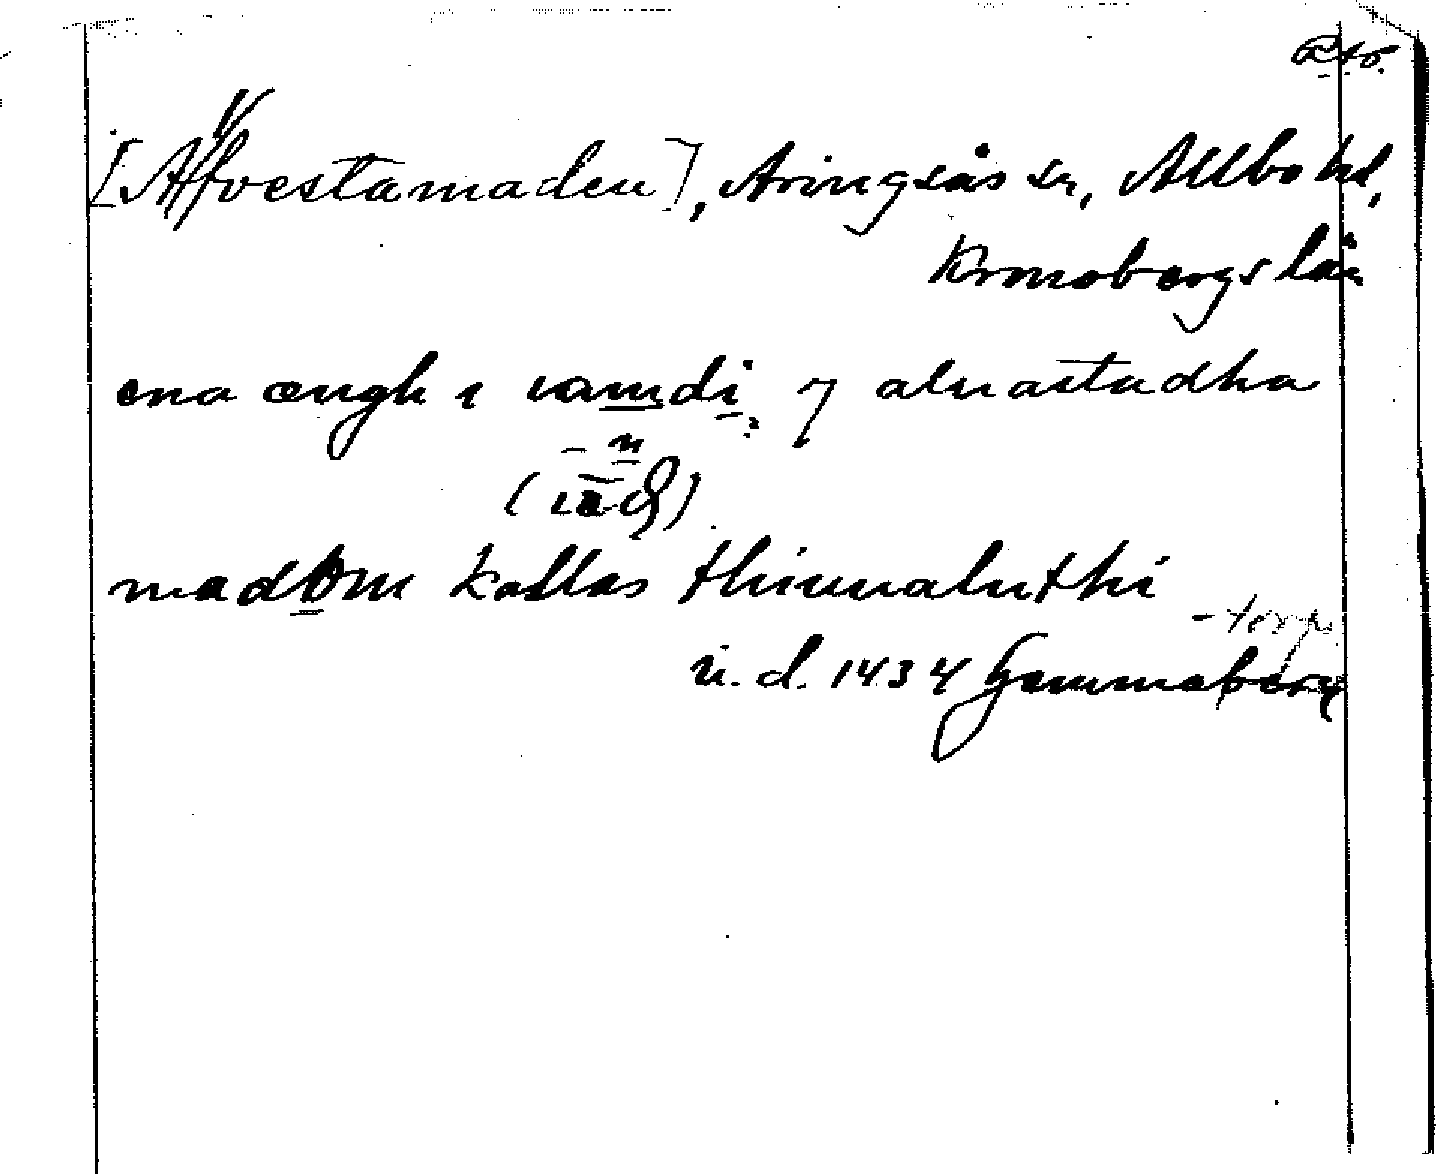 Pto.
[Afvestamaden], Aringsås sn, Allbo hd,
Kronobergs län
ena ængh i vamdi, ⁊ aluastadha
n
madom kallas thinnaluthi
u. d. 1434 Hammaberg